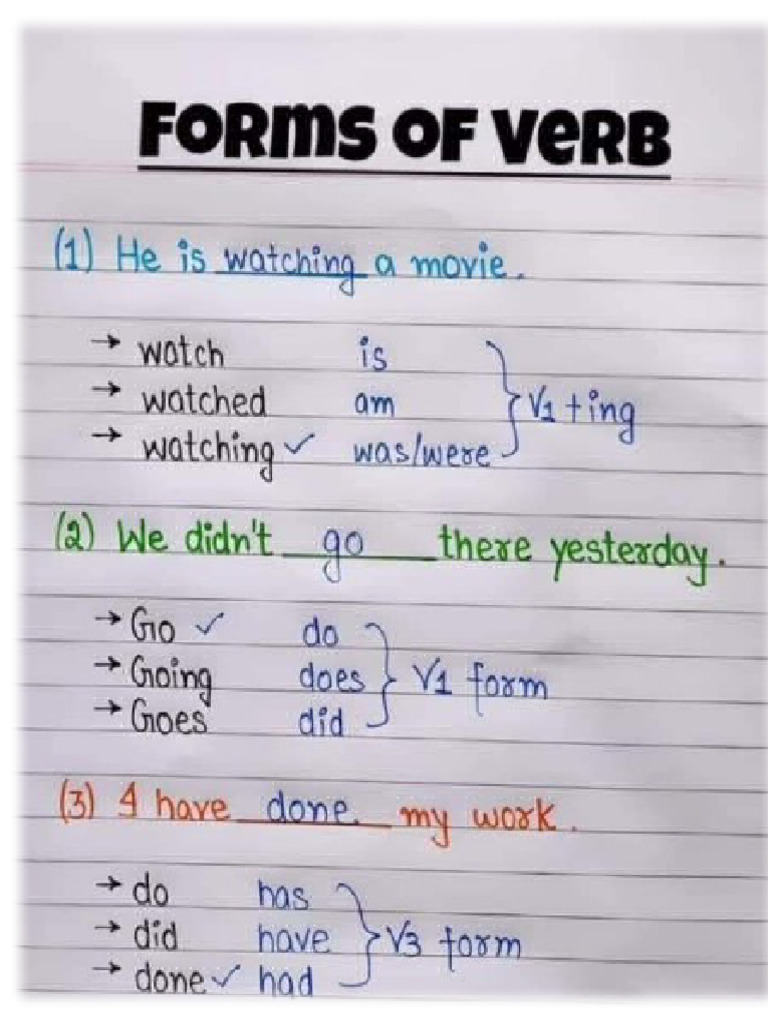 Forms of Verb
(1) He is watching a movie.
→ watch is
→ watched am } V1 + ing
→ watching ✓ was/were
(2) We didn't go there yesterday.
→ Go ✓ do
→ Going does } V1 form
→ Goes did
(3) I have done my work.
→ do has
→ did have } V3 form
→ done ✓ had